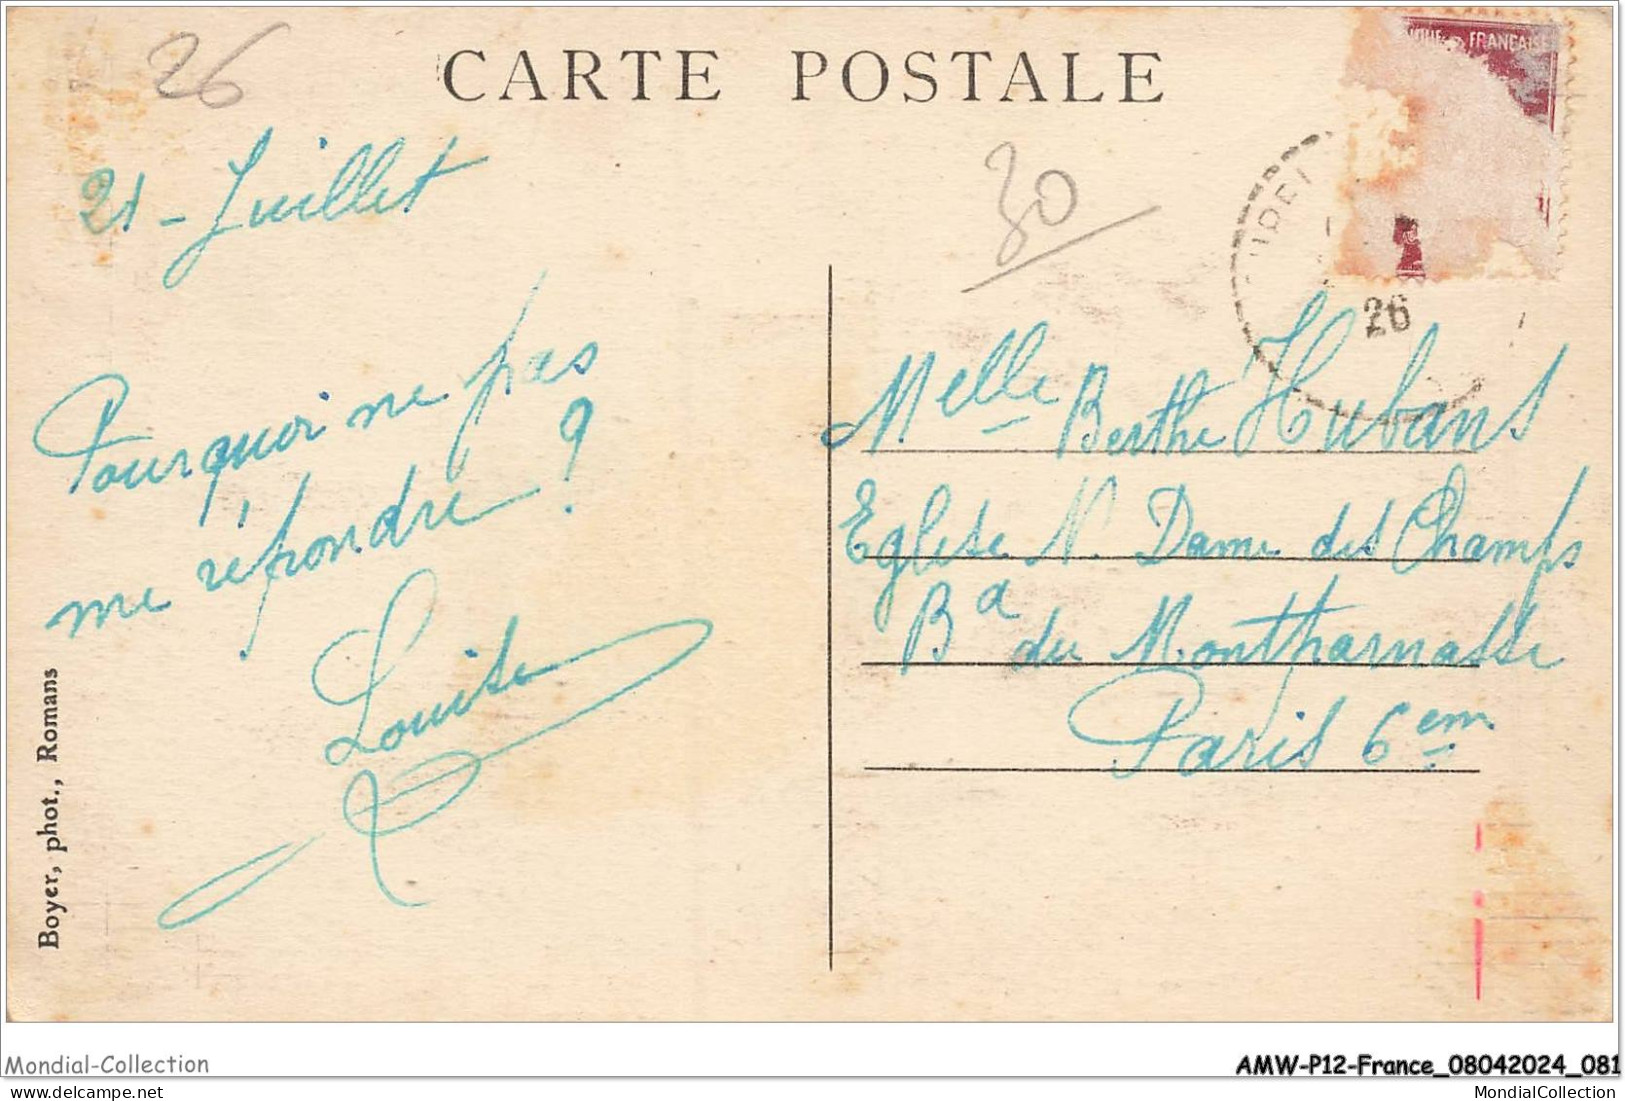 26
CARTE POSTALE
FRANÇAISE
21 - Juillet
30
26
Pourquoi ne pas
me répondre ?
Louise
Melle Berthe Hubans
Eglise N. Dame des Champs
Bd du Montparnasse
Paris 6em
Boyer, phot., Romans
Mondial-Collection
AMW-P12-France_08042024_081
MondialCollection